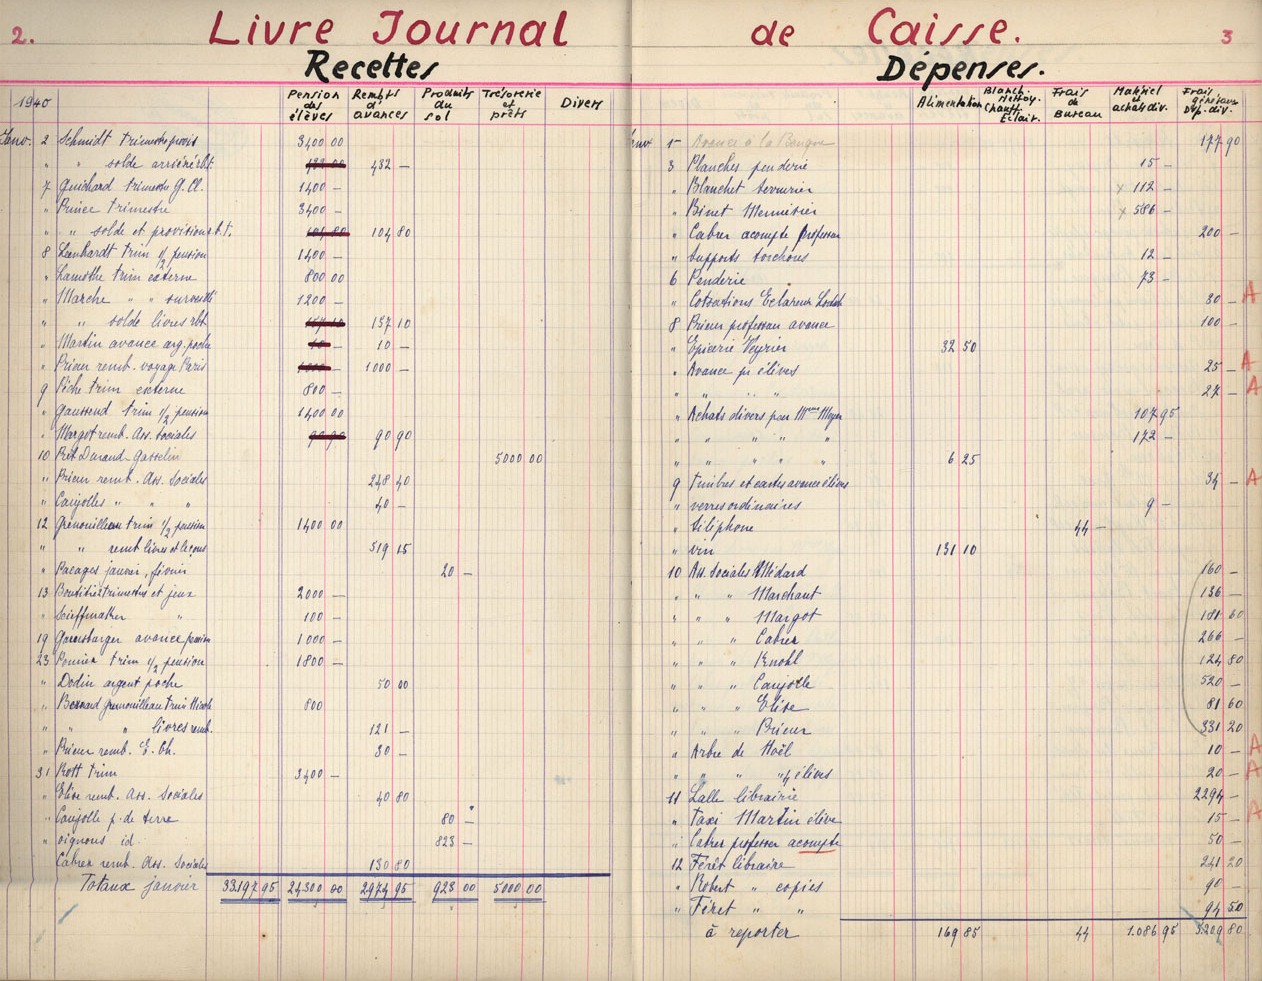 2. Livre Journal de Caisse. 3
Recettes
1940 Pension des élèves Rembts d'avances Produits du sol Trésorerie et prêts Divers
Janv. 2 Schmidt trimestre provis 3400 00
" " solde arriéré rbt. 432 — 432 —
7 Guichard trimestre G. Cl. 1400 —
" Prince trimestre 3400 —
" " solde et provisions r.b.t. 104 80 104 80
8 Leenhardt trim 1/2 pension 1400 —
" Lamothe trim externe 800 00
" Marche " " surveillé 1200 —
" " solde livres rbt 137 10 137 10
" Martin avance arg. poche 10 — 10 —
" Prieur remb. voyage Paris 1000 — 1000 —
9 Pêche trim externe 800 —
" Gaussend trim 1/2 pension 1400 00
" Margot remb. Ass. Sociales 90 90 90 90
10 Prêt Durand-Gasselin 5000 00
" Prieur remb. Ass. Sociales 248 40
" Caujolles " " " 40 —
12 Grenouilleau trim 1/2 pension 1400 00
" " remb livres et leçons 519 15
" Pacages janvier, février 20 —
13 trimestres et jeux 2000 —
" " 100 —
19 avance pension 1000 —
23 trim 1/2 pension 1800 —
" Dodin argent poche 50 00
" Bernard Grenouilleau trim 800
" " " livres remb. 121 —
" Prieur remb. E. Ch. 30 —
31 Rott trim 3400 —
" Elise remb. Ass. Sociales 40 80
" Caujolle p. de terre 80 —
" oignons id. 823 —
Cabrer remb. Ass. Sociales 130 80
Totaux janvier 33197 95 24300 00 2974 95 923 00 5000 00
Dépenses.
Alimentation Blanch. Nettoy. Chauff. Eclair. Frais de Bureau Matériel et achats div. Frais généraux Dép. div.
Janv 1er Avance à la Banque 177 90
3 Planches penderie 15 —
" Blanchet serrurier x 112 —
" Binet Menuisier x 586 —
" Cabrer acompte professeur 200 —
" Supports torchons 12 —
6 Penderie " 73 —
" Cotisations Eclaireur 30 — A
8 Prieur professeur avance 100 —
" Epicerie Veyrier 32 50
" Avance pr élèves 25 — A
" " " " 27 — A
" Achats divers par Mme Meyer 107 95
" " " " " 172 —
" " " " " 6 25
9 timbres et cartes avance élèves 34 — A
" verres ordinaires 9 —
" téléphone 44 —
" vin 131 10
10 Ass. Sociales Médard 160 —
" " " Marchant 136 —
" " " Margot 181 60
" " " Cabrer 266 —
" " " Knobl 124 80
" " " Caujolle 520 —
" " " Elise 81 60
" " " Prieur 331 20
" Arbre de Noël 10 — A
" " " " 4 élèves 20 — A
11 Lalle librairie 2294 —
" Taxi Martin élève 15 — A
" Cabrer professeur acompte 50 —
12 Féret libraire 241 20
" Robert " copies 90 —
" Féret " " 94 50
à reporter 169 85 44 1.086 95 5209 80